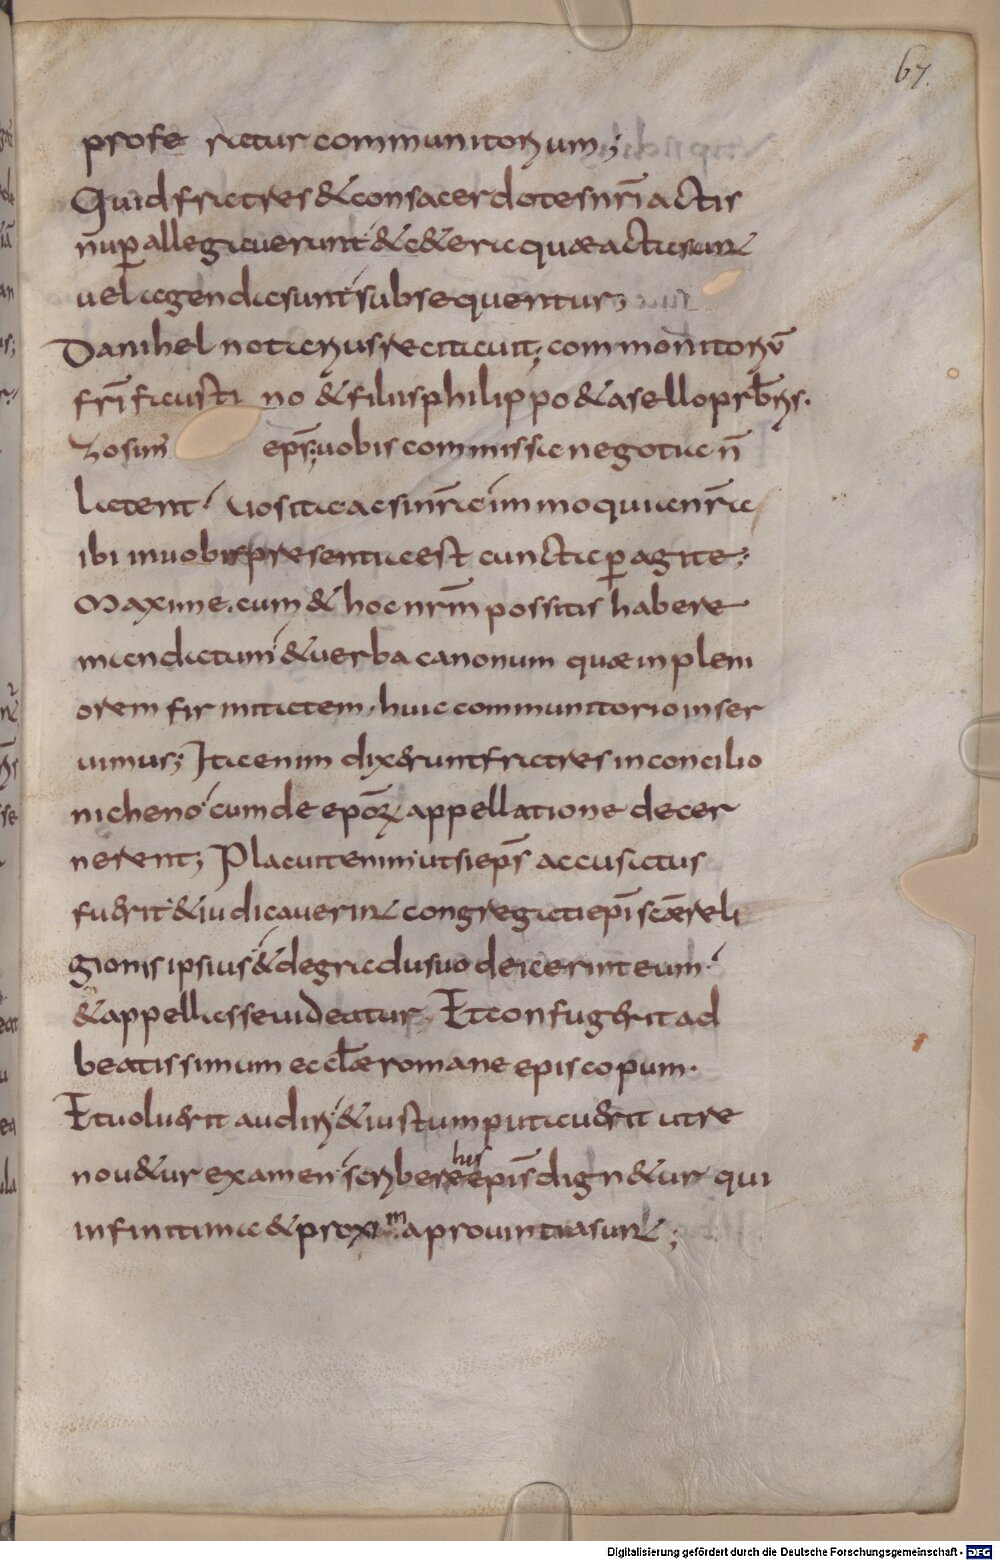 67.
profe ratur communitorium;
Quid fratres & consacerdotes nr̄i actis
nup̱ allegauerunt & c&era quæ acta sunt
uel agenda sunt subsequentur;
Danihel notarius recitauit; commonitoriū
fr̄i fausti no & filiis philippo & asello prb̄ris.
Zosim̄ ep̄s; uobis commissa negotia n̄
latent uos ita ac si nr̄a immo quia nr̄a
ibi in uobis presentia est cuncta p̱agite;
Maxime. cum & hoc nr̄m possitis habere
mandatum & uerba canonum quæ in pleni
orem firmitatem. huic communitorio inser
uimus; Ita enim dixerunt fratres in concilio
nicheno cum de ep̄orum appellatione decer
nerent; Placuit enim ut si ep̄s accusatus
fuerit & iudicauerint congregati ep̄i sc̄æ reli
gionis ipsius & de gradu suo deiecerint eum
& appellasse uideatur. Et confugerit ad
beatissimum eccl̄æ romane episcopum.
Et uoluerit audiri & iustum putauerit ut re
nou&ur examen scribere his ep̄is dign&ur qui
in finitima & proxima prouintia sunt;
Digitalisierung gefördert durch die Deutsche Forschungsgemeinschaft - DFG